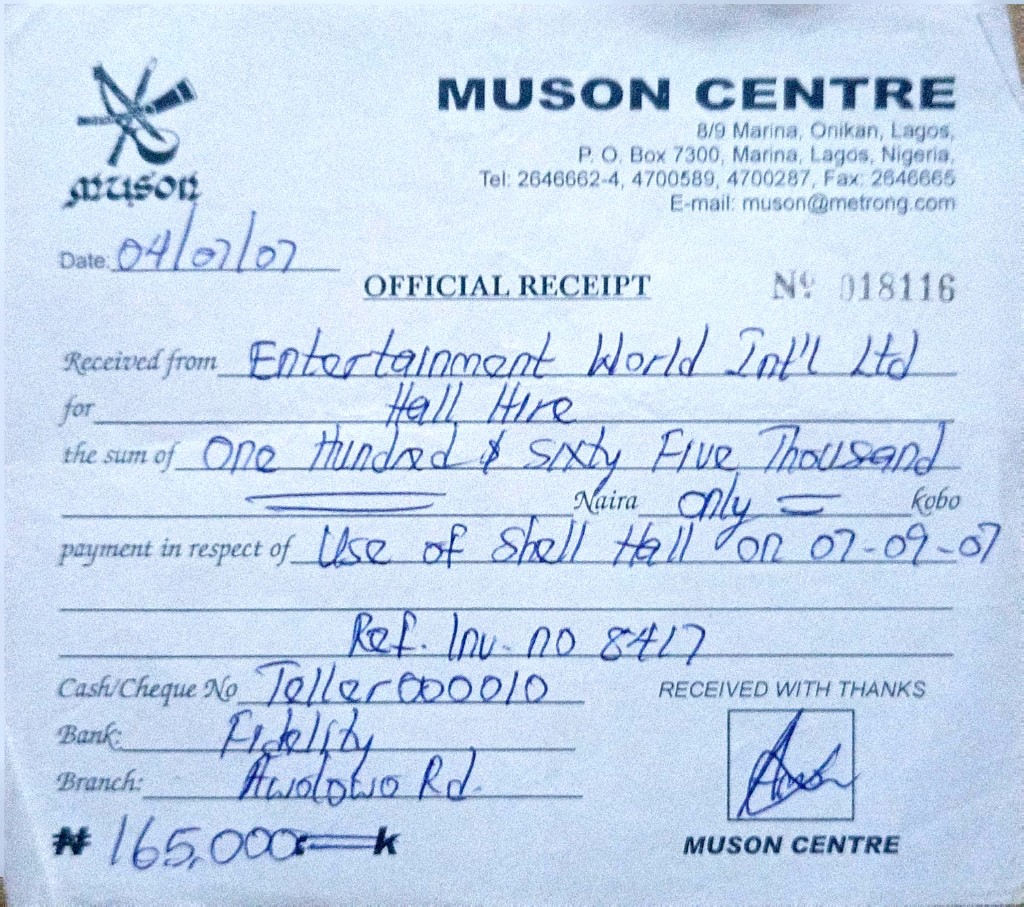 MUSON CENTRE
8/9 Marina, Onikan, Lagos,
P. O. Box 7300, Marina, Lagos, Nigeria,
Tel: 2646662-4, 4700589, 4700287, Fax: 2646665
E-mail: muson@metrong.com
muson
Date: 04/07/07
OFFICIAL RECEIPT Nº 018116
Received from Entertainment World Int'l Ltd
for Hall Hire
the sum of One Hundred & Sixty Five Thousand
Naira only = kobo
payment in respect of Use of Shell Hall on 07-09-07
Ref. Inv. no 8417
Cash/Cheque No Teller 000010 RECEIVED WITH THANKS
Bank: Fidelity
Branch: Awolowo Rd.
₦ 165,000 : = k MUSON CENTRE